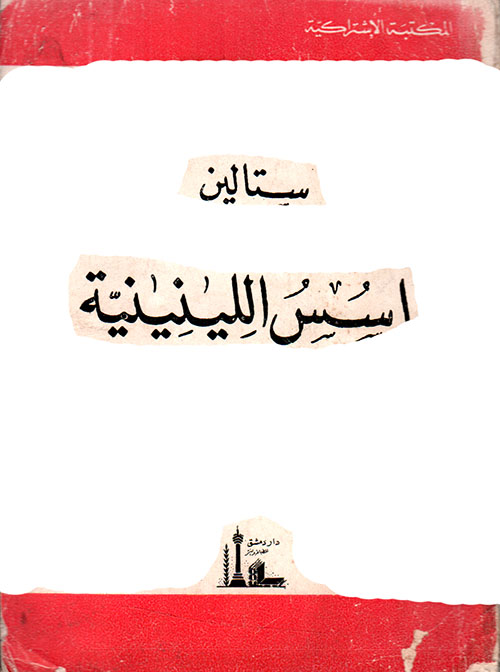 المكتبة الإشتراكية
ستالين
اسُسُ اللينينيّة
دار دمشق